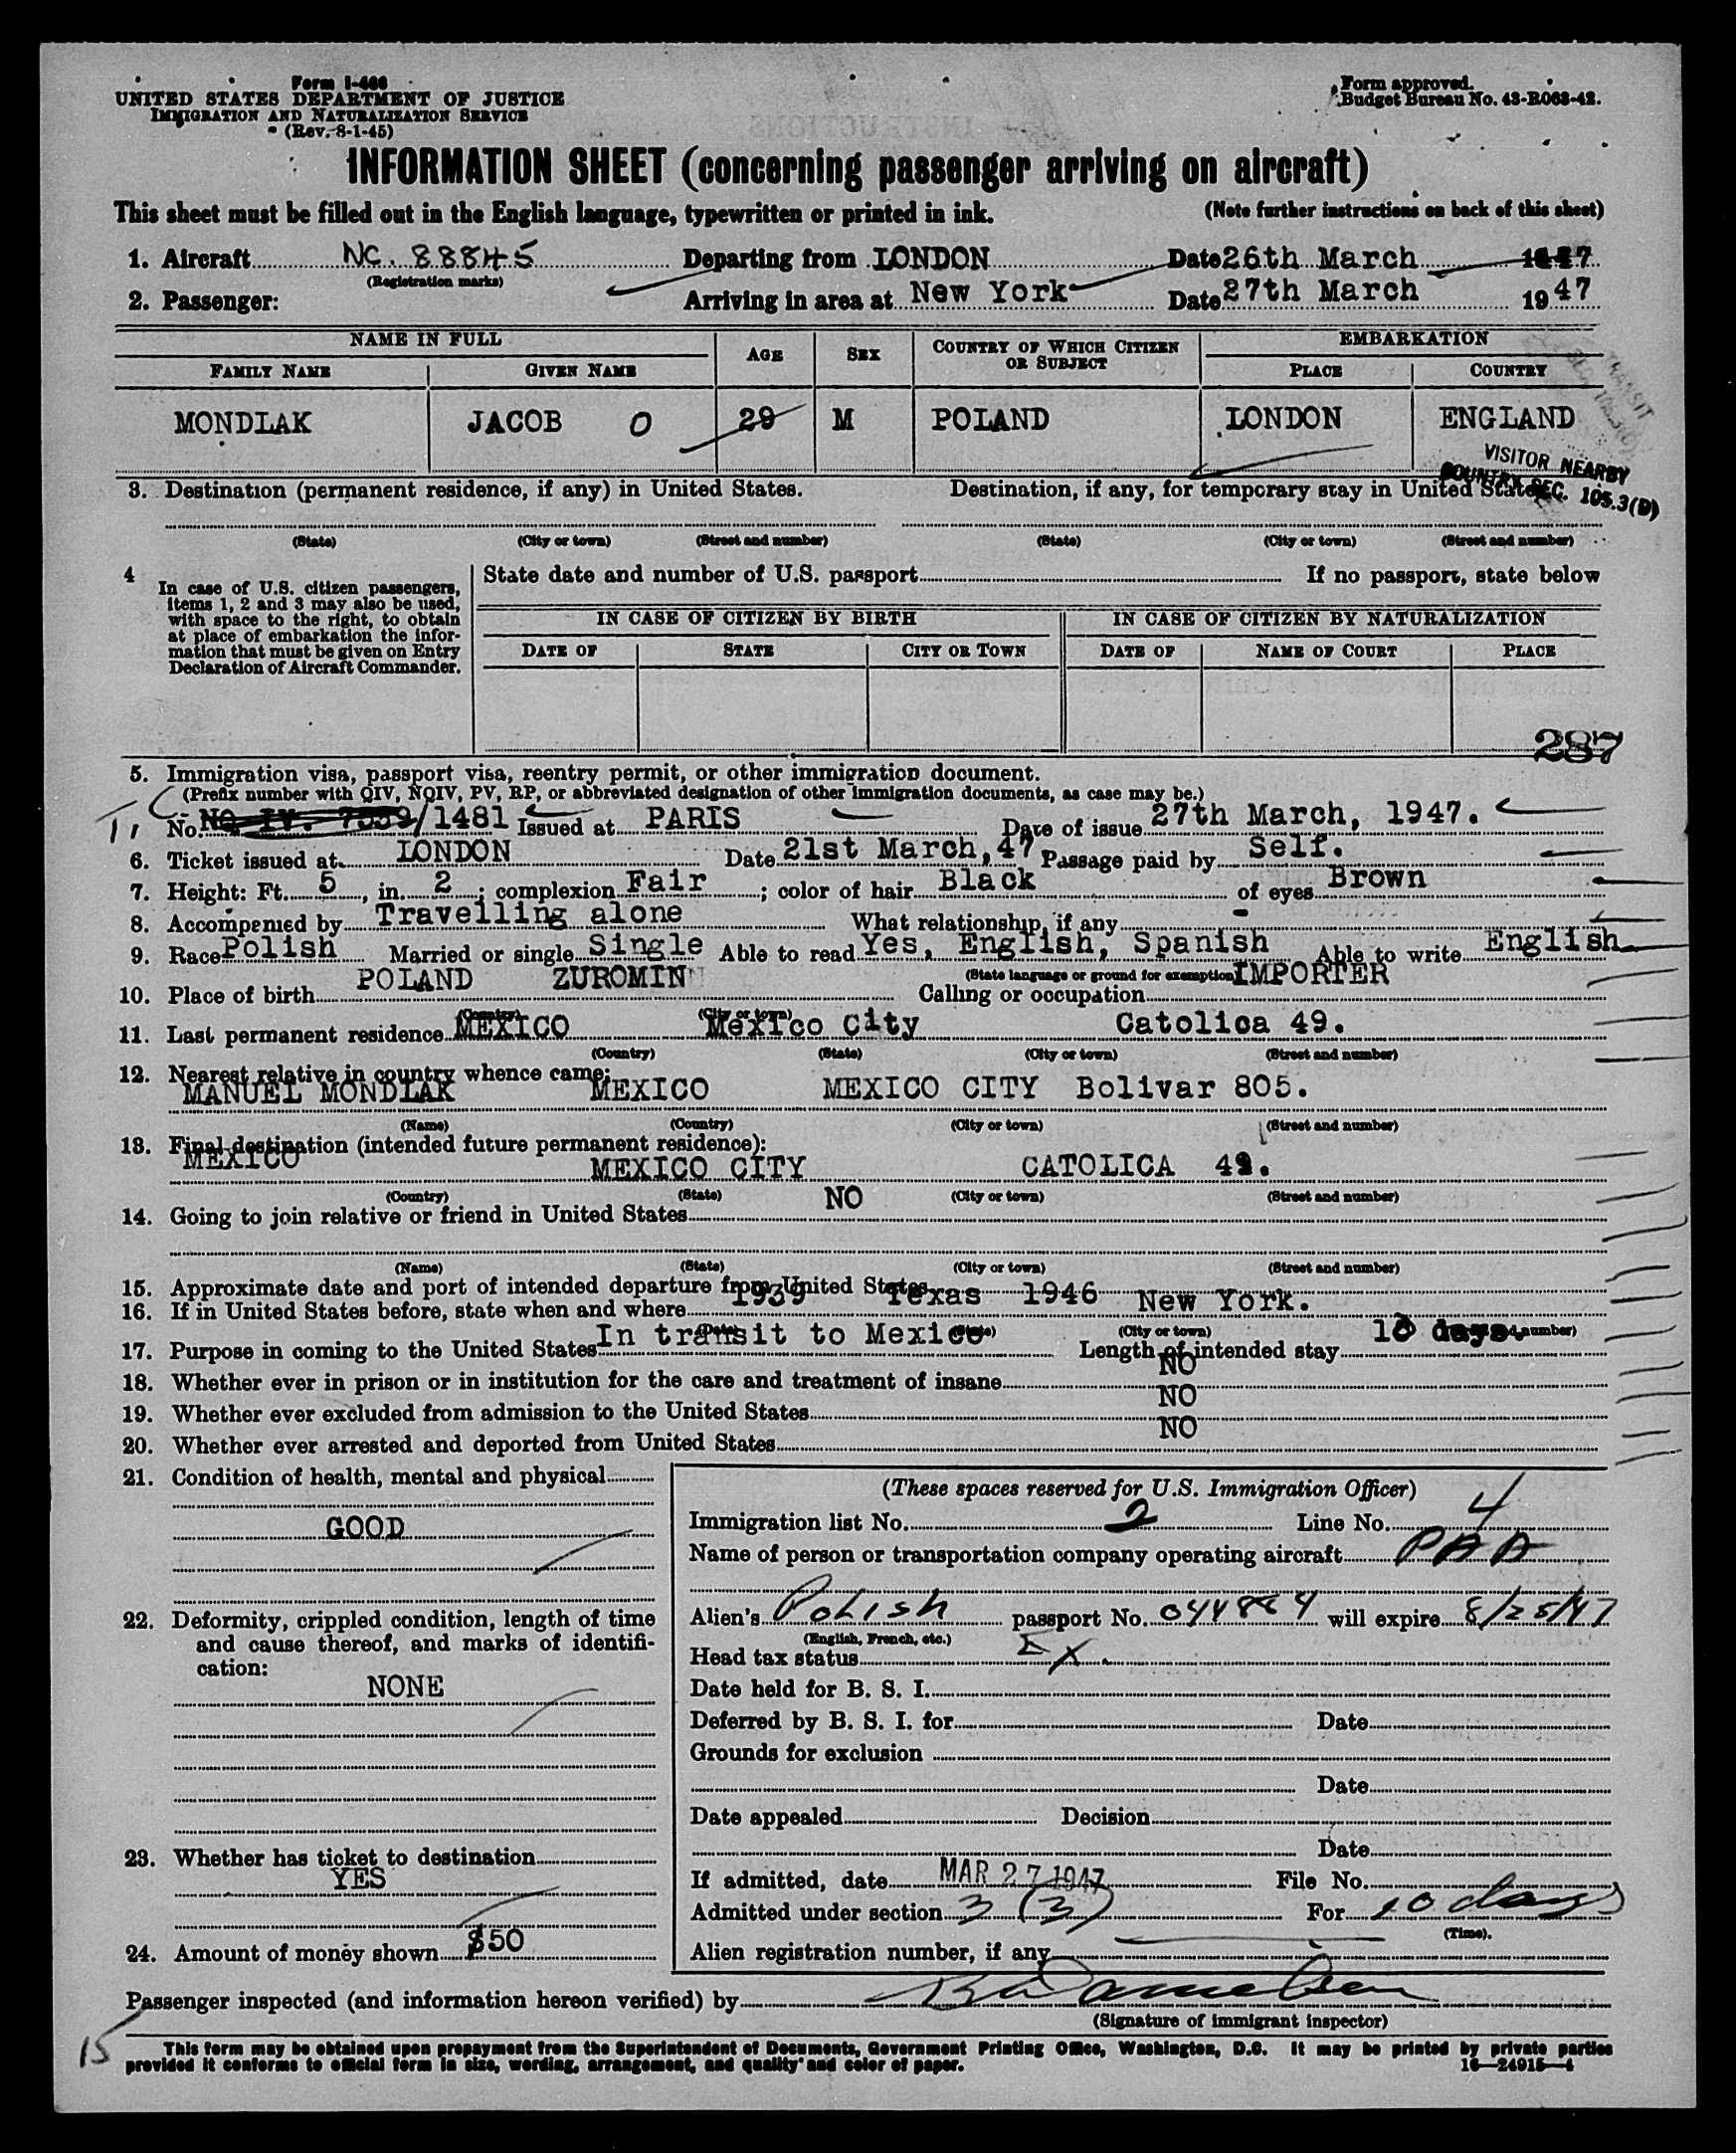 Form I-466
UNITED STATES DEPARTMENT OF JUSTICE
IMMIGRATION AND NATURALIZATION SERVICE
(Rev. 8-1-45)
Form approved.
Budget Bureau No. 43-R063-42.
INFORMATION SHEET (concerning passenger arriving on aircraft)
This sheet must be filled out in the English language, typewritten or printed in ink. (Note further instructions on back of this sheet)
1. Aircraft NC. 88845 Departing from LONDON Date 26th March 1947
(Registration marks)
2. Passenger: Arriving in area at New York Date 27th March 1947
NAME IN FULL AGE SEX COUNTRY OF WHICH CITIZEN OR SUBJECT EMBARKATION
FAMILY NAME GIVEN NAME PLACE COUNTRY
MONDLAK JACOB O 29 M POLAND LONDON ENGLAND
TRANSIT
VISITOR NEARBY
COUNTRY SEC. 105.3(D)
3. Destination (permanent residence, if any) in United States. Destination, if any, for temporary stay in United States
(State) (City or town) (Street and number) (State) (City or town) (Street and number)
4 In case of U.S. citizen passengers, items 1, 2 and 3 may also be used, with space to the right, to obtain at place of embarkation the information that must be given on Entry Declaration of Aircraft Commander.
State date and number of U.S. passport If no passport, state below
IN CASE OF CITIZEN BY BIRTH IN CASE OF CITIZEN BY NATURALIZATION
DATE OF STATE CITY OR TOWN DATE OF NAME OF COURT PLACE
287
5. Immigration visa, passport visa, reentry permit, or other immigration document.
(Prefix number with QIV, NQIV, PV, RP, or abbreviated designation of other immigration documents, as case may be.)
No. /1481 Issued at PARIS Date of issue 27th March, 1947.
6. Ticket issued at LONDON Date 21st March,47 Passage paid by Self.
7. Height: Ft. 5, in. 2; complexion Fair; color of hair Black of eyes Brown
8. Accompenied by Travelling alone What relationship, if any -
9. Race Polish Married or single Single Able to read Yes, English, Spanish Able to write English
(State language or ground for exemption)
10. Place of birth POLAND ZUROMIN Calling or occupation IMPORTER
(Country) (City or town)
11. Last permanent residence MEXICO Mexico City Catolica 49.
(Country) (State) (City or town) (Street and number)
12. Nearest relative in country whence came:
MANUEL MONDLAK MEXICO MEXICO CITY Bolivar 805.
(Name) (Country) (City or town) (Street and number)
13. Final destination (intended future permanent residence):
MEXICO MEXICO CITY CATOLICA 49.
(Country) (State) (City or town) (Street and number)
14. Going to join relative or friend in United States NO
(Name) (State) (City or town) (Street and number)
15. Approximate date and port of intended departure from United States
16. If in United States before, state when and where 1939 Texas 1946 New York.
(Date) (State) (City or town) (Street and number)
17. Purpose in coming to the United States In transit to Mexico Length of intended stay 10 days.
18. Whether ever in prison or in institution for the care and treatment of insane NO
19. Whether ever excluded from admission to the United States NO
20. Whether ever arrested and deported from United States NO
21. Condition of health, mental and physical
GOOD
22. Deformity, crippled condition, length of time
and cause thereof, and marks of identifi-
cation:
NONE
23. Whether has ticket to destination
YES
24. Amount of money shown $50
(These spaces reserved for U.S. Immigration Officer)
Immigration list No. 2 Line No. 4
Name of person or transportation company operating aircraft PAA
Alien's Polish passport No. 044884 will expire 8/28/47
(English, French, etc.)
Head tax status EX.
Date held for B. S. I.
Deferred by B. S. I. for Date
Grounds for exclusion
Date
Date appealed Decision
Date
If admitted, date MAR 27 1947 File No.
Admitted under section 3 (3) For 10 days
(Time).
Alien registration number, if any
Passenger inspected (and information hereon verified) by
(Signature of immigrant inspector)
15
This form may be obtained upon prepayment from the Superintendent of Documents, Government Printing Office, Washington, D.C. It may be printed by private parties
provided it conforms to official form in size, wording, arrangement, and quality and color of paper. 16—24915-4